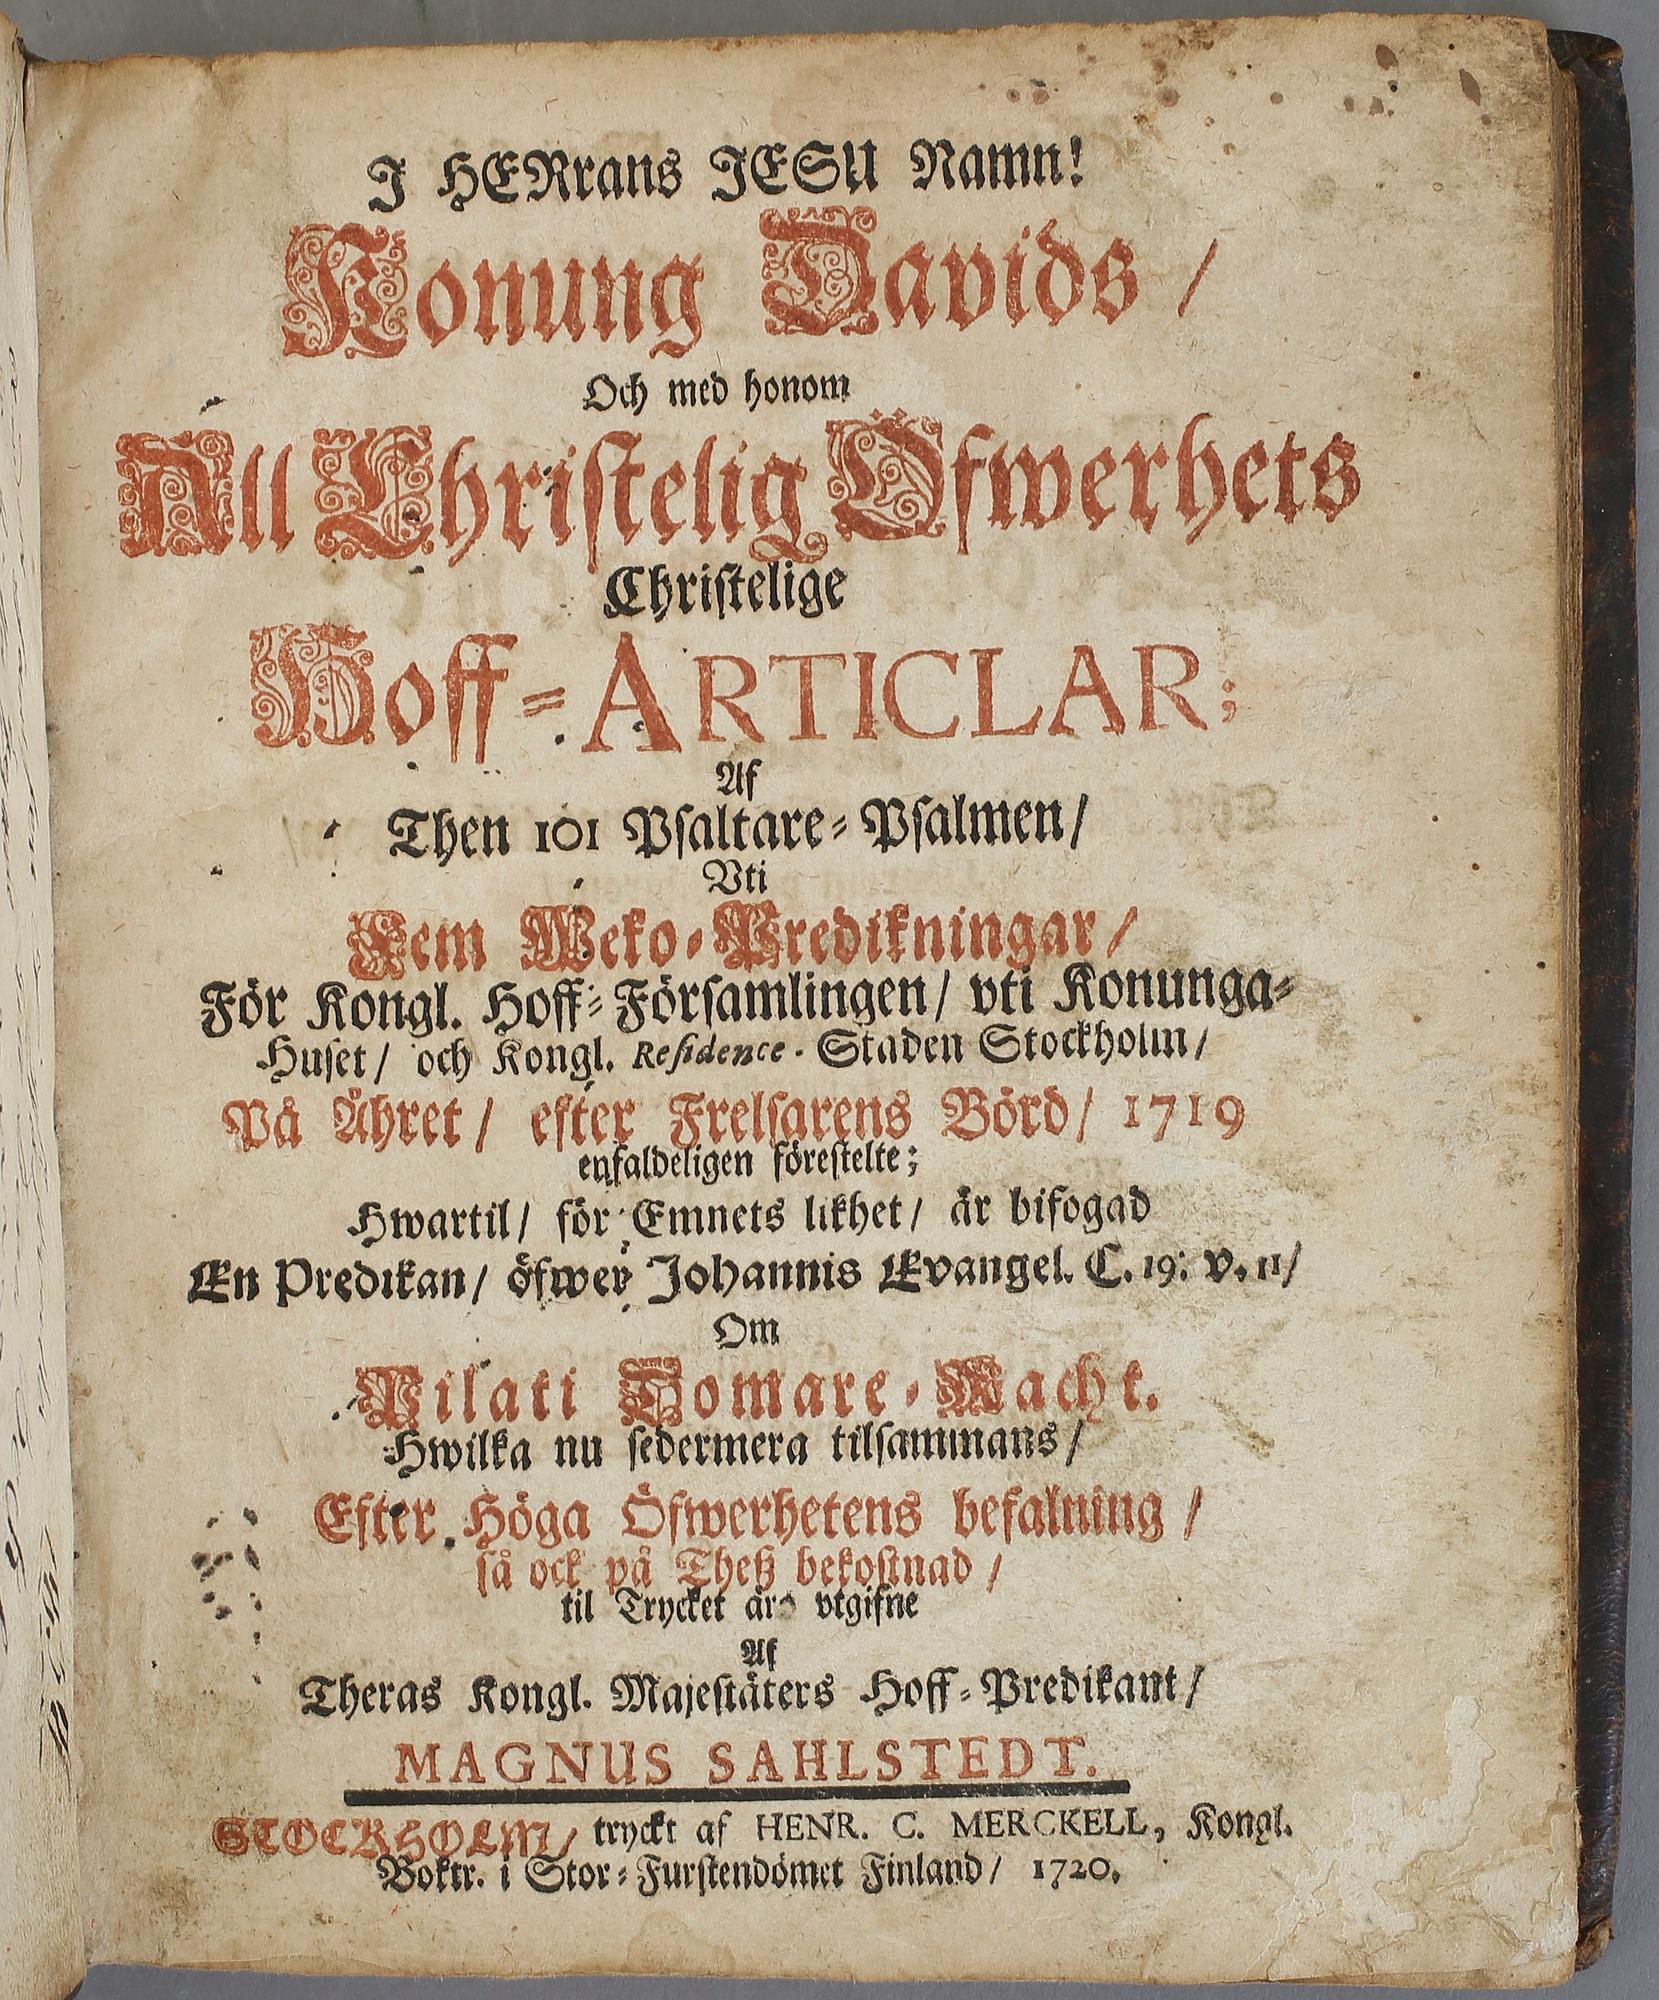 J HERrans JESU Namn!
Konung Davids /
Och med honom
All Christelig Öfwerhets
Christelige
Hoff-ARTICLAR;
Af
Then 101 Psaltare-Psalmen/
Vti
Fem Weko-Predikningar/
För Kongl. Hoff-Församlingen/ vti Konunga-
Huset/ och Kongl. Residence-Staden Stockholm/
På Åhret/ efter Frelsarens Börd/ 1719
enfaldeligen förestelte;
Hwartil/ för Emnets likhet/ är bifogad
En Predikan/ öfwer Johannis Evangel. C. 19: v. 11/
Om
Pilati Domare-Macht.
Hwilka nu sedermera tilsammans/
Efter Höga Öfwerhetens befalning /
så ock på Theß bekostnad /
til Trycket äro vtgifne
Af
Theras Kongl. Majestäters Hoff-Predikant/
MAGNUS SAHLSTEDT.
STOCKHOLM/ tryckt af HENR. C. MERCKELL, Kongl.
Boktr. i Stor-Furstendömet Finland/ 1720.